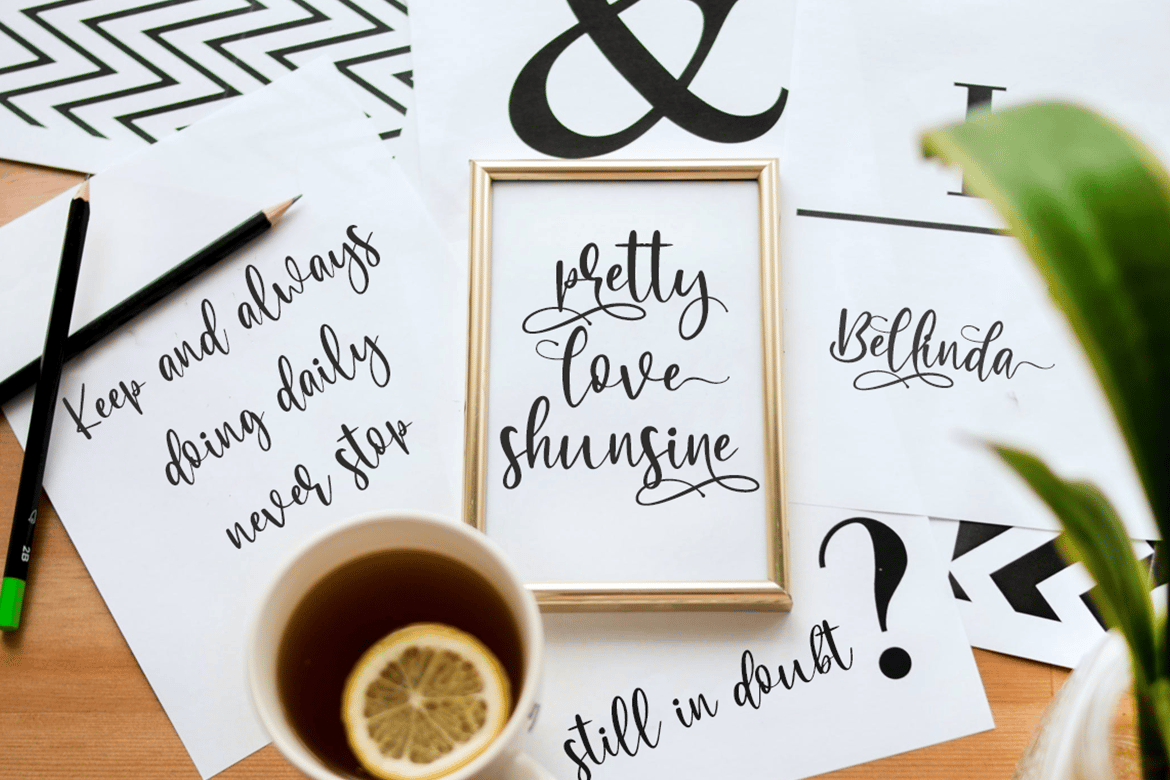 &
I
Keep and always
doing daily
never stop
pretty
love
shunsine
Bellinda
?
still in doubt
2B